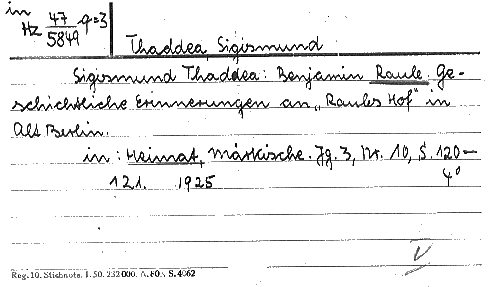 in
Hz 47/5849 q=3
Thaddea, Sigismund
Sigismund Thaddea: Benjamin Raule. Ge-
schichtliche Erinnerungen an „Raules Hof" in
Alt Berlin.
in: Heimat, Märkische. Jg. 3, Nr. 10, S. 120-
121. 1925 4°
Reg. 10. Stichnote. 1. 50. 232000. A.FO. S. 4062